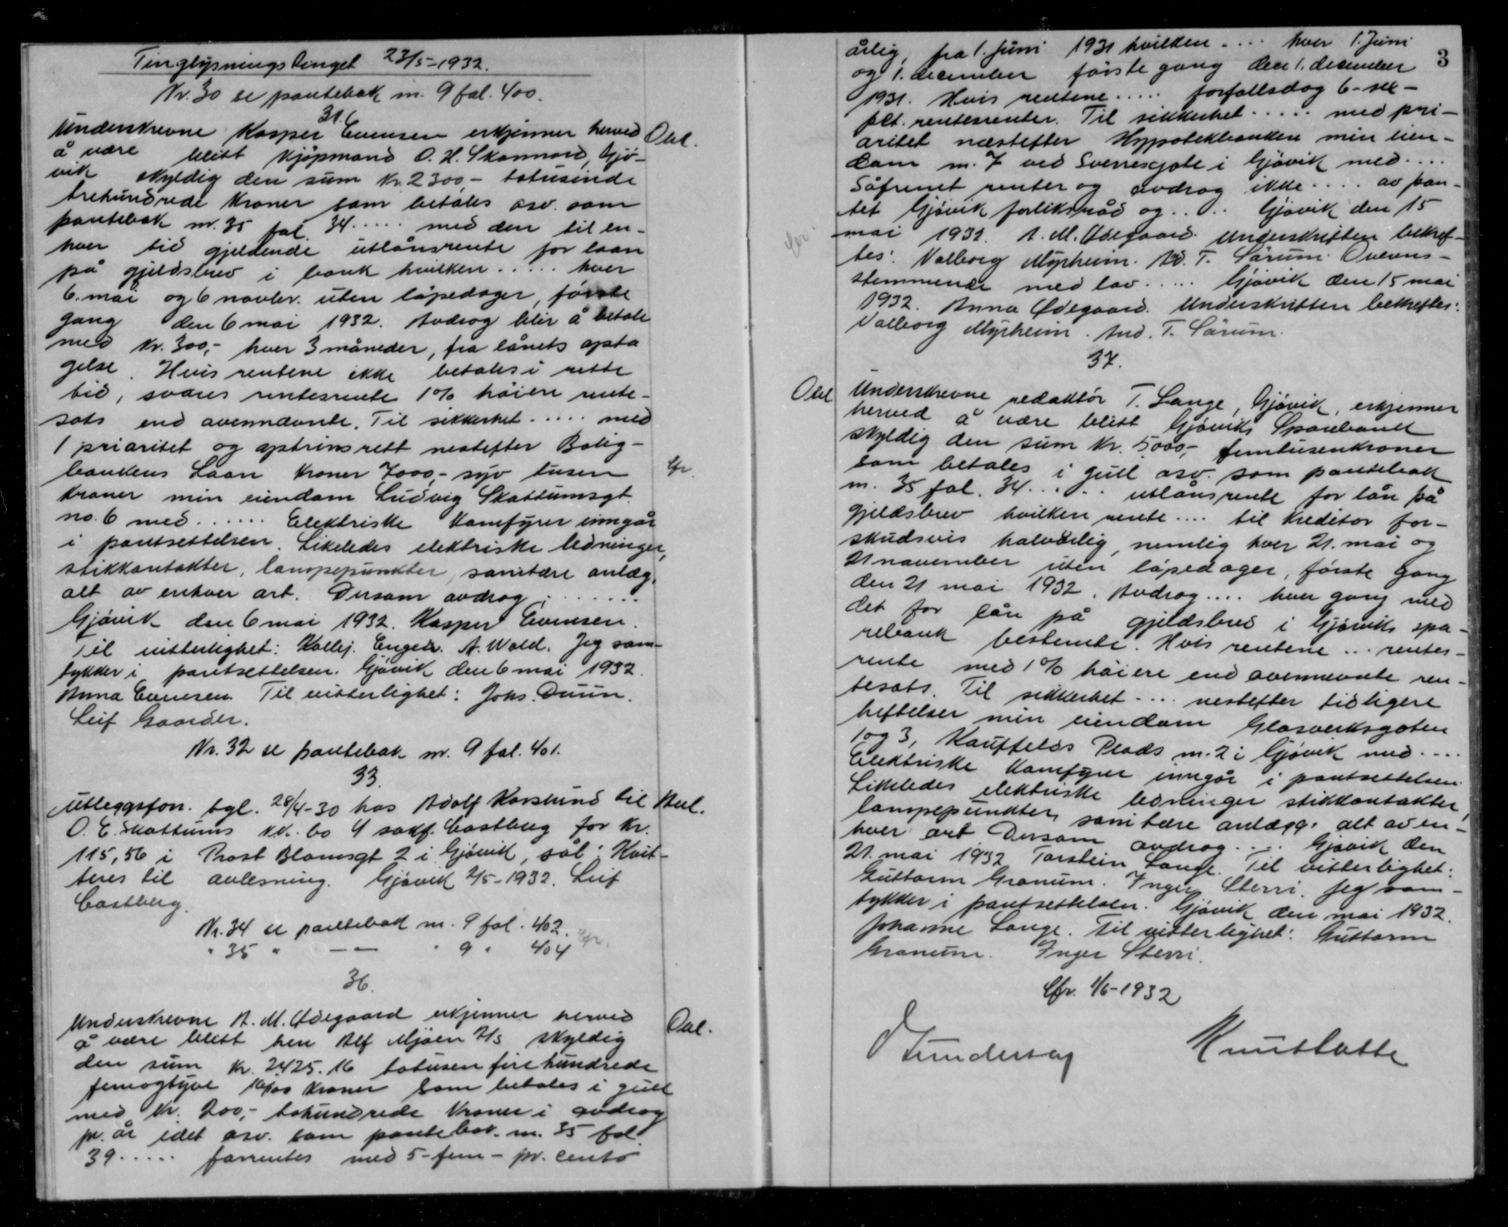 Tinglysningstinget 23/5-1932.
Nr. 30 se pantebok nr. 9 fol. 400.
31.
Underskrevne Kasper Evensen erkjenner herved Obl.
å være blitt kjøpmand O. H. Skannord, Gjø-
vik skyldig den sum kr. 2300,- totusinde
trehundrede kroner som betales osv. som
pantebok nr. 35 fol. 34 ..... med den til en-
hver tid gjeldende utlånsrente for laan
på gjeldsbrev i bank hvilken ..... hver
6. mai og 6 novbr. uten løpedager, første
gang den 6 mai 1932. Avdrag blir å betale
med kr. 300,- hver 3 måneder, fra lånets opta
gelse. Hvis rentene ikke betales i rette
tid, svares rentesrente 1% høiere rente-
sats end ovennævnte. Til sikkerhet ..... med
1 prioritet og optrinsrett nestefter Bolig-
bankens Laan kroner 7000,- syv tusen
kroner min eiendom Ludvig Skattumsgt.
no. 6 med ...... Elektriske komfyrer inngår
i pantsettelsen. Likeledes elektriske ledninger,
stikkontakter, lampepunkter, sanitære anlæg,
alt av enhver art. Dersom avdrag .......
Gjøvik den 6 mai 1932. Kasper Evensen.
Til vitterlighet: Kolbj. Engen. A. Wold. Jeg sam-
tykker i pantsettelsen. Gjøvik den 6 mai 1932.
Anna Evensen Til vitterlighet: Johs. Duun.
Leif Gaarder.
Nr. 32 se pantebok nr. 9 fol. 401.
33.
Utleggsforr. tgl. 28/4-30 hos Adolf Karslund til Avl.
O. E. Skattums kk. bo v/ sakf. Castberg for kr.
115,56 i Prost Blomsgt 2 i Gjøvik, sål: Kvit-
teres til avlesning. Gjøvik 2/5-1932. Leif
Castberg.
Nr. 34 se pantebok nr. 9 fol. 402.
" 35 " — — " 9 " 404
36.
Underskrevne A. M. Ødegaard erkjenner herved Obl.
å være blitt hen Alf Mjøen A/S skyldig
den sum kr. 2425.16 totusen firehundrede
femogtyve 16/100 kroner som betales i gull
med kr. 200,- tohundrede kroner i avdrag
pr. år idet osv. som pantebok nr. 35 fol.
39 ..... forrentes med 5-fem- pr. cento
3
årlig, fra 1. juni 1931 hvilken .... hver 1. Juni
og 1. december første gang den 1. december
1931. Hvis rentene ..... forfallsdag 6-sek-
pct. rentesrenter. Til sikkerhet ..... med pri-
oritet næstefter Hypotekbanken min eien-
dom nr. 7 ved Sverresgate i Gjøvik med ....
Såfremt renter og avdrag ikke .... av pan-
tet Gjøvik forliksråd og .... Gjøvik den 15
mai 1932. A. M. Ødegaard. Underskriften bekref-
tes: Valborg Myrheim. And. T. Sørum. Overens-
stemmende med lov ..... Gjøvik den 15 mai
1932. Anna Ødegaard. Underskriften bekreftes:
Valborg Myrheim. And. T. Sørum.
37.
Obl Underskrevne redaktør T. Lange, Gjøvik, erkjenner
herved å være blitt Gjøviks Sparebank
skyldig den sum kr. 5000,- femtusenkroner
som betales i gull osv. som pantebok
nr. 35 fol. 34 ..... utlånsrente for lån på
gjeldsbrev hvilken rente .... til kreditor for-
skudsvis halvårlig, nemlig hver 21. mai og
21 november uten løpedager, første gang
den 21 mai 1932. Avdrag .... hver gang med
det for lån på gjeldsbrev i Gjøviks spa-
rebank bestemte. Hvis rentene ... rentes-
rente med 1% høiere end ovennevnte ren-
tesats. Til sikkerhet .... nestefter tidligere
heftelser min eiendom Glasverksgaten
1 og 3, Kauffelds Plads nr. 2 i Gjøvik med ....
Elektriske komfyrer inngår i pantsettelsen.
Likeledes elektriske ledninger stikkontakter,
lampepunkter, sanitære anlæg, alt av en-
hver art Dersom avdrag .... Gjøvik den
21. mai 1932 Torstein Lange. Til vitterlighet:
Guttorm Granum. Inger Sterri. Jeg sam-
tykker i pantsettelsen. Gjøvik den mai 1932.
Johanne Lange. Til vitterlighet: Guttorm
Granum. Inger Sterri.
Cfr. 1/6-1932